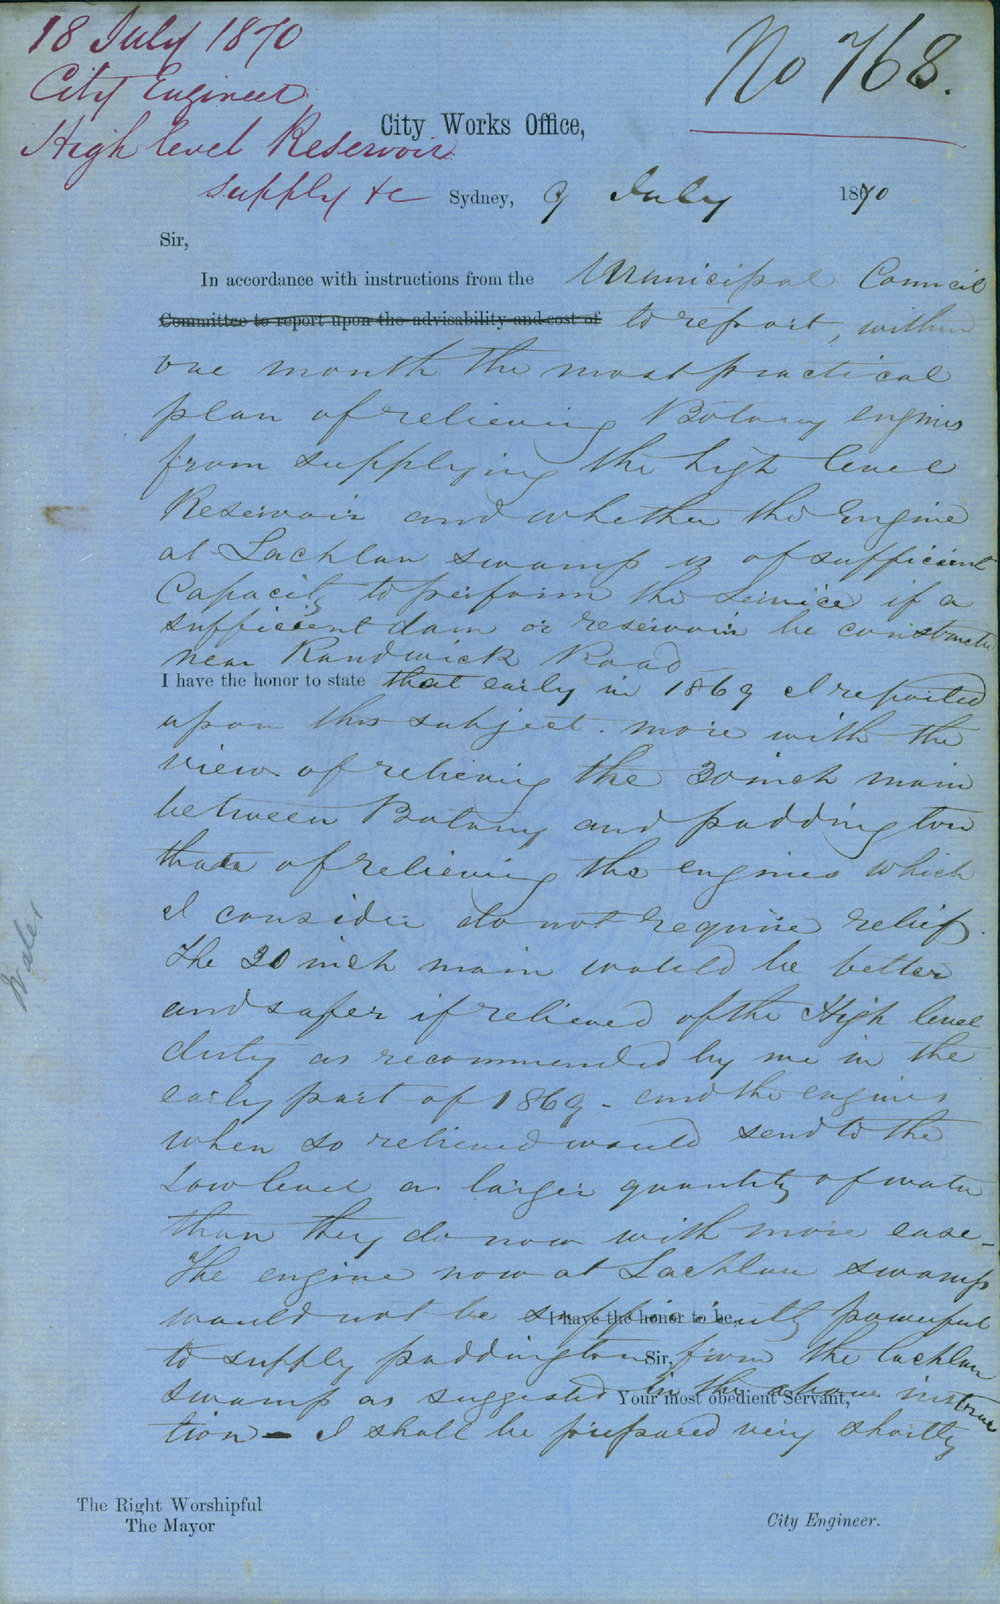 18 July 1870
City Engineer
High level Reservoir
supply &c
No 768.
City Works Office,
Sydney, 9 July 1870
Sir,
In accordance with instructions from the Municipal Council
Committee to report upon the advisability and cost of to report, within
one month the most practical
plan of relieving Botany engines
from supplying the high level
Reservoir and whether the Engine
at Lachlan swamp is of sufficient
Capacity to perform the service if a
sufficient dam or reservoir be constructed
near Randwick Road
I have the honor to state that early in 1869 I reported
upon this subject. more with the
view of relieving the 30 inch main
between Botany and paddington
than of relieving the engines which
I consider do not require relief.
The 30 inch main would be better
and safer if relieved of the High level
duty as recommended by me in the
early part of 1869 - and the engines
when so relieved would send to the
Low level a larger quantity of water
than they do now with more ease -
The engine now at Lachlan swamp
would not be sufficiently powerful
I have the honor to be,
to supply paddington from the Lachlan
Sir,
swamp as suggested in the above instruc
Your most obedient Servant,
tion - I shall be prepared very shortly
The Right Worshipful
The Mayor
City Engineer.
Water